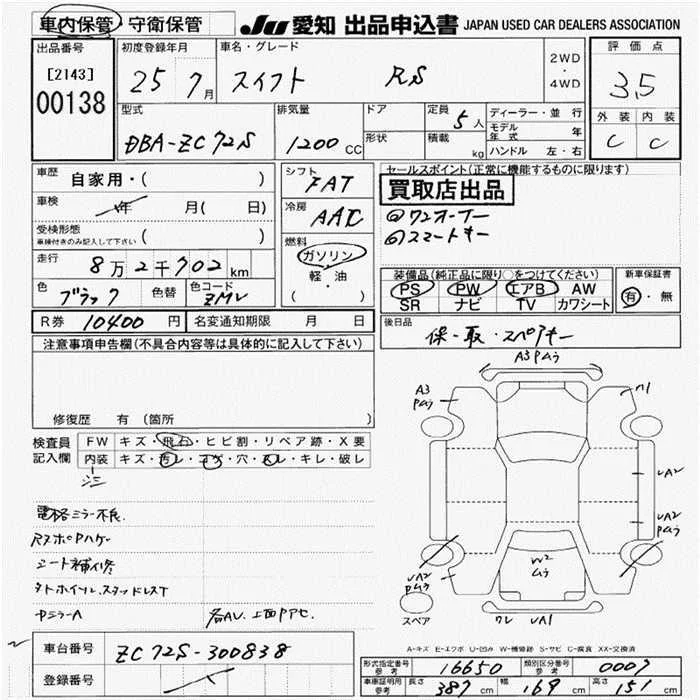 車内保管・守衛保管
JU 愛知 出品申込書 JAPAN USED CAR DEALERS ASSOCIATION
出品番号
[2143]
00138
初度登録年月
25 7月
車名・グレード
スイフト RS
2WD
・
4WD
評価点
3.5
外装 内装
C C
型式
DBA-ZC72S
排気量
1200 CC
ドア
形状
定員 5人
積載 kg
ディーラー・並行
モデル年式 年
ハンドル 左・右
車歴 自家用・( )
車検 年 月( 日)
受検形態
車検付きのみ記入して下さい ( )
走行 8万2千702km
色 ブラック 色替 色コード ZMV
シフト FAT
冷房 AAC
燃料
ガソリン
軽・油
( )
セールスポイント(正常に機能するものに限ります)
買取店出品
◎ワンオーナー
◎スマートキー
装備品(純正品に限り○をつけてください)
PS PW エアB AW
SR ナビ TV カワシート
新車保証書
有・無
R券 10400円 名変通知期限 月 日
後日品
保・取・スペアキー
注意事項申告欄(不具合内容等は具体的に記入して下さい)
修復歴 有(箇所 )
検査員記入欄
FW キズ・飛石・ヒビ割・リペア跡・X要
内装 キズ・汚レ・コゲ・穴・スレ・キレ・破レ
シミ
電格ミラー不良.
シート補修
タトホイール.スタッドレスT
中ミラーA
A3 Pムラ
A3
Pムラ
UA2
UA2
Pムラ
UA2
Pムラ
W2
ムラ
UA1
スペア
A-キズ E-エクボ U-凹み W-補修跡 S-サビ C-腐食 XX-交換済
車台番号 ZC72S-300838
登録番号
形式指定番号参考 16650 類別区分番号参考 0007
車庫証明用参考 長さ 387cm 幅 169cm 高さ 151cm